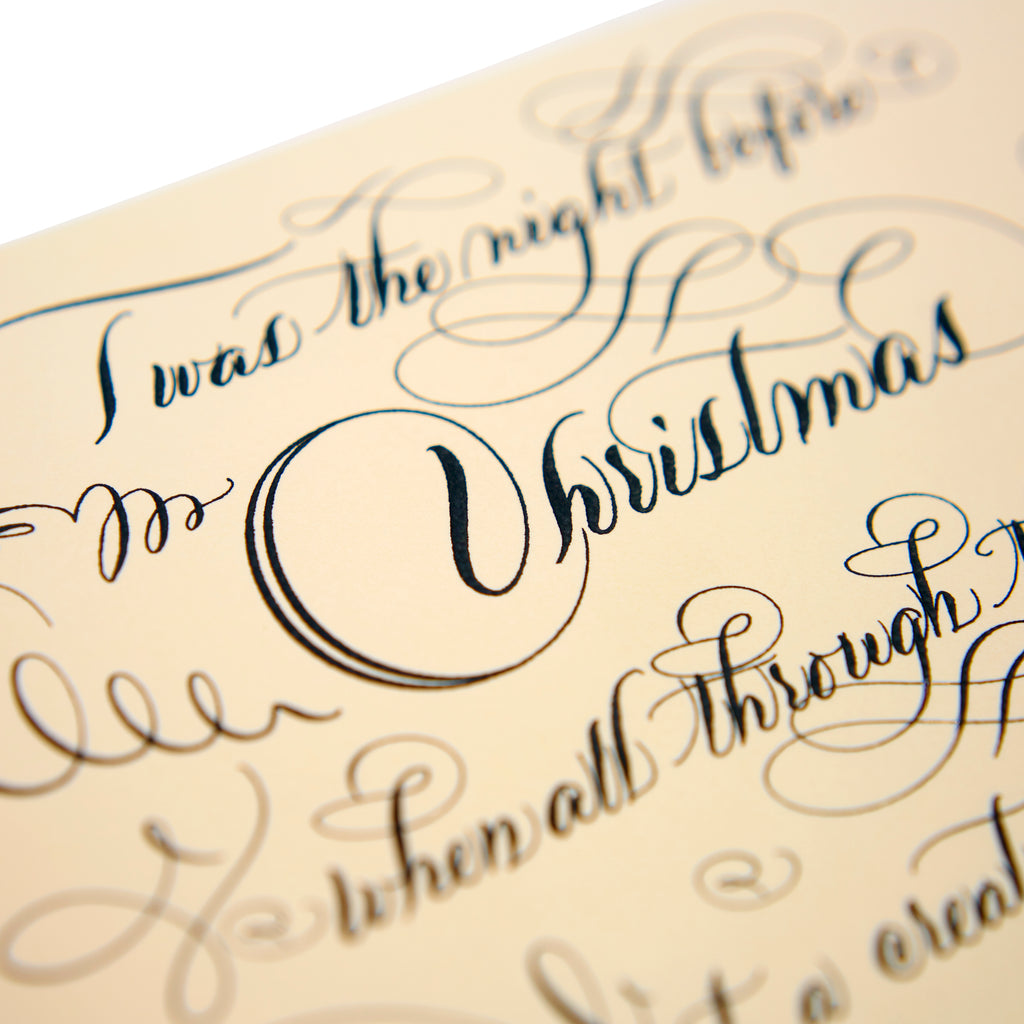 Twas the night before
Christmas
When all through
t a creat